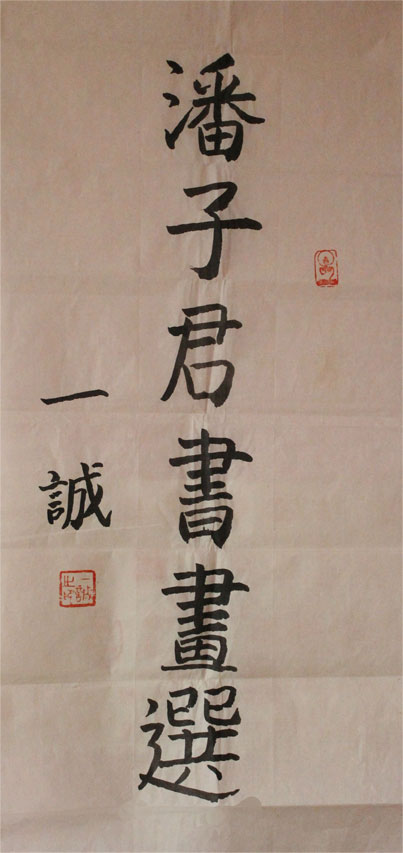 潘子君書畫選
一誠